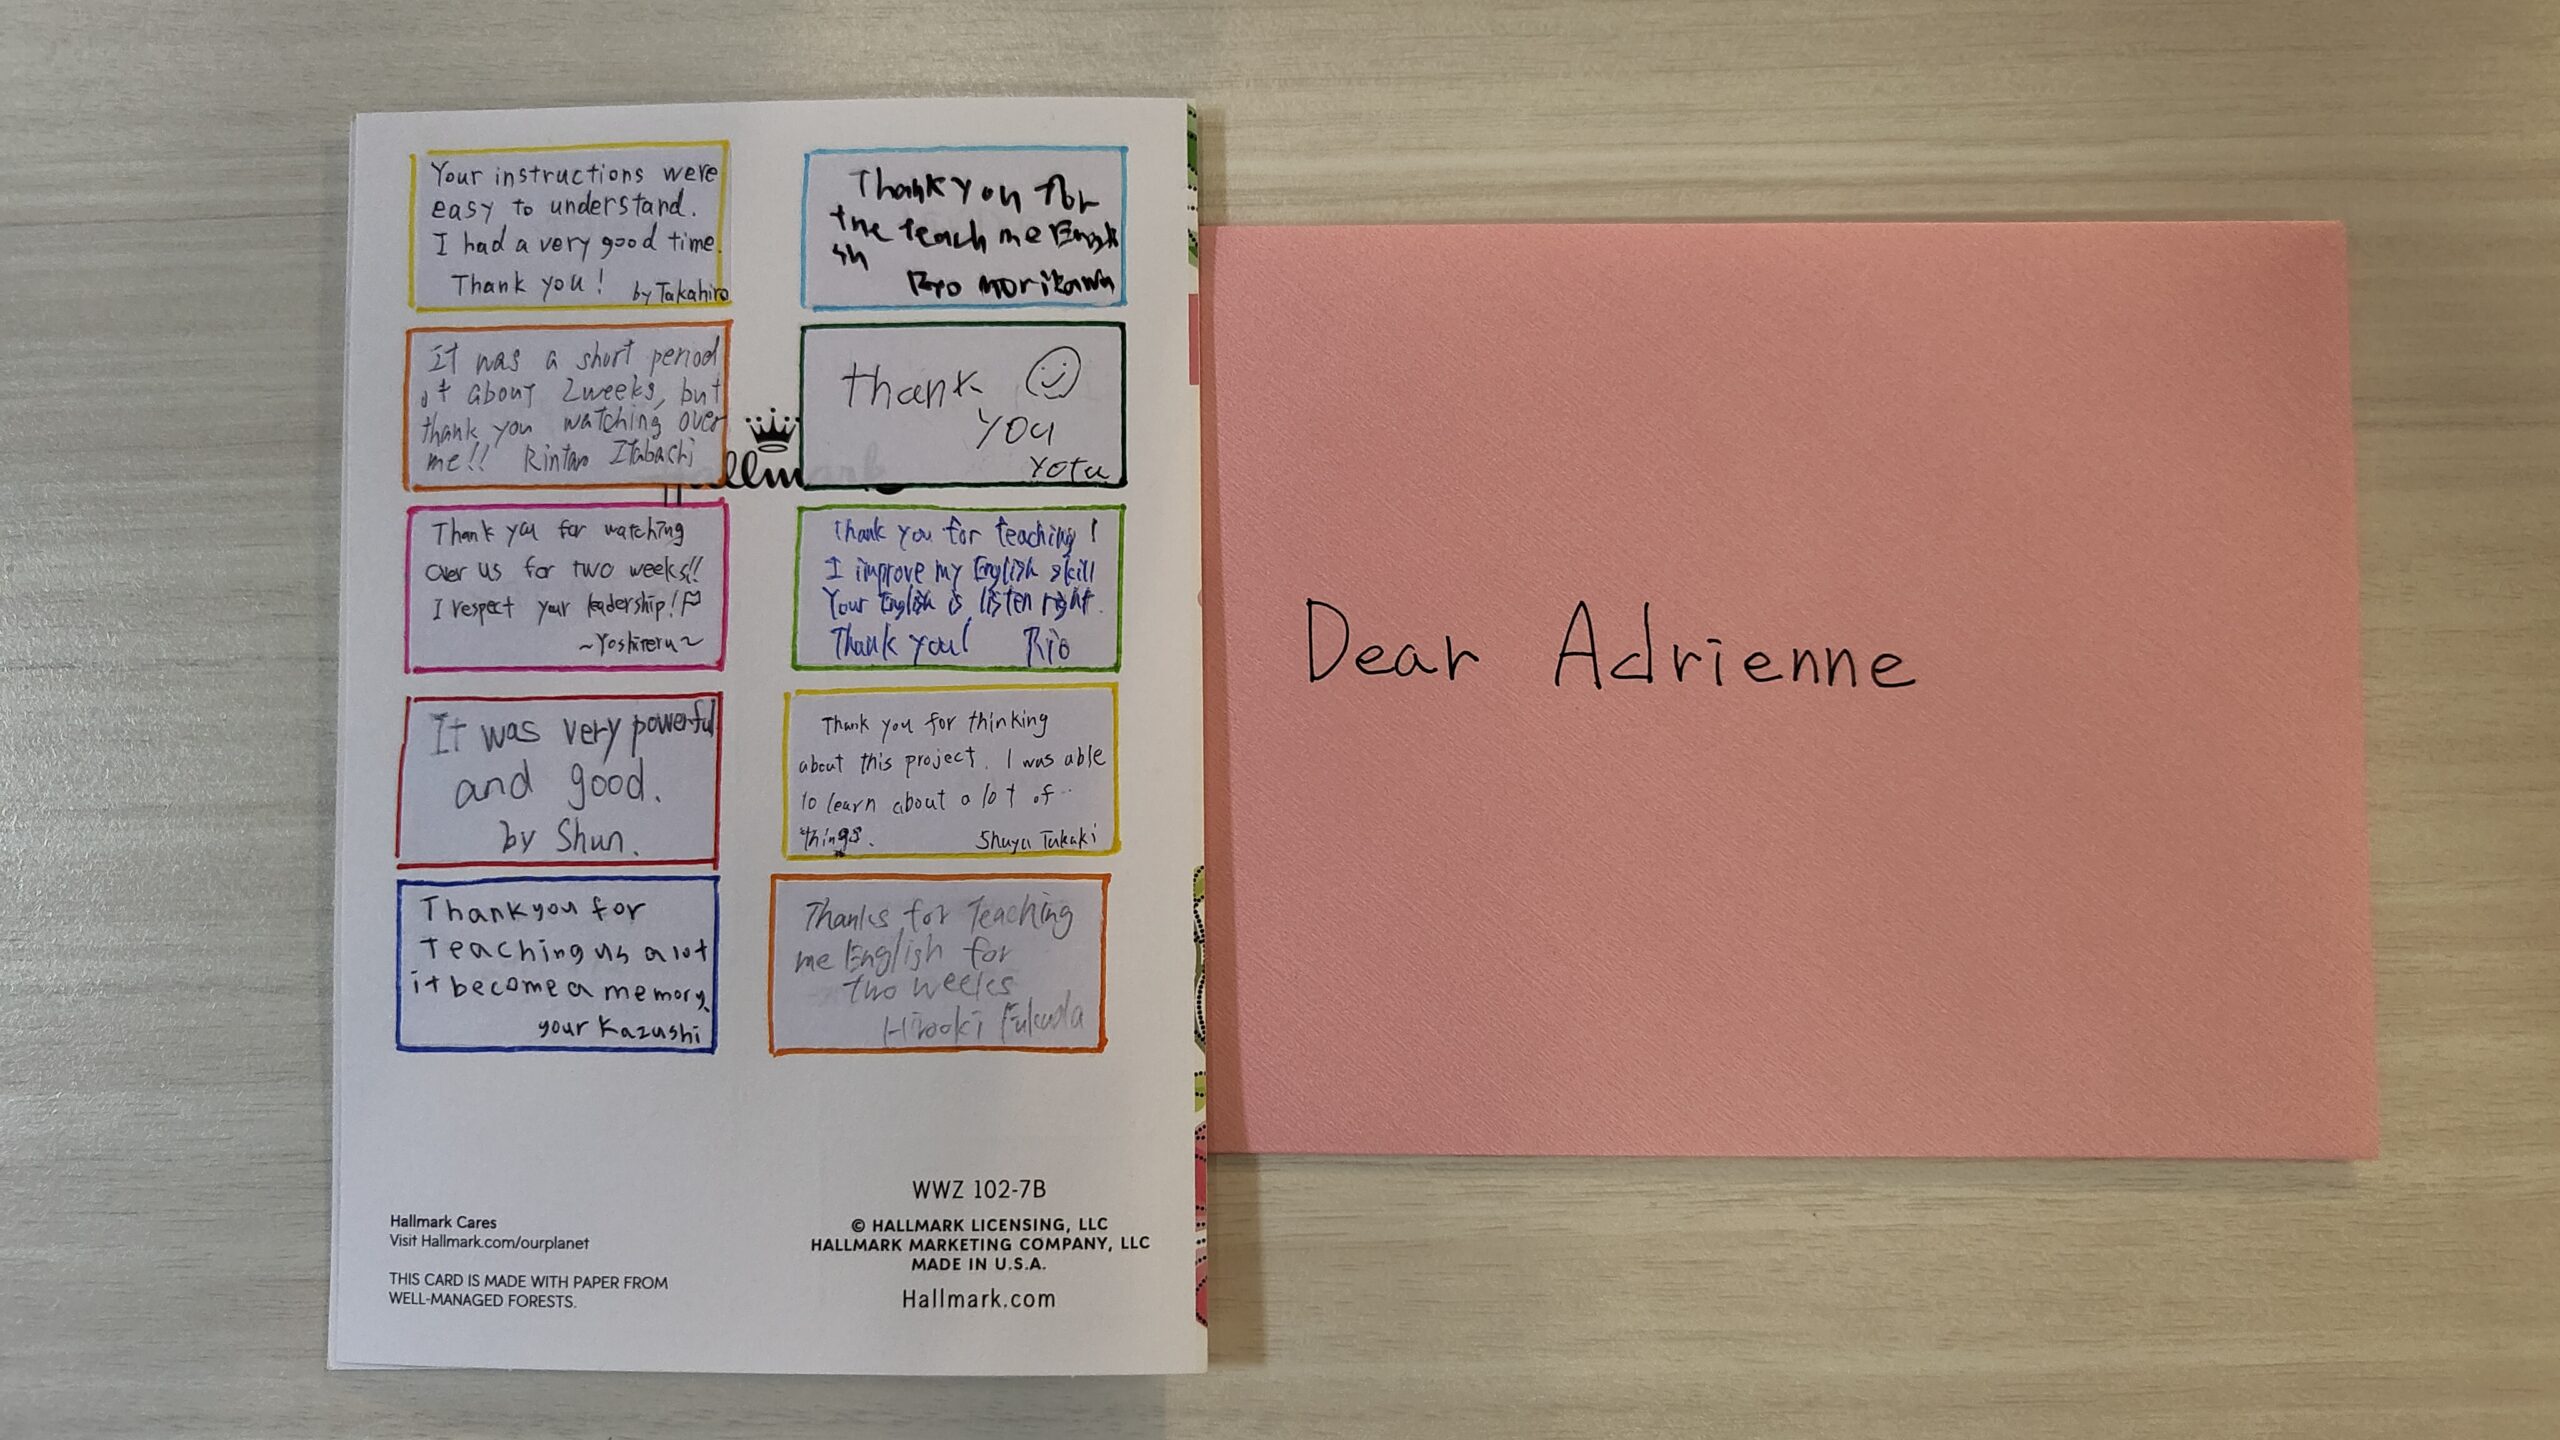 Your instructions were
easy to understand.
I had a very good time.
Thank you!
by Takahiro
It was a short period
of about 2weeks, but
thank you watching over
me!! Rintaro Itabachi
Thank you for watching
over us for two weeks!!
I respect your leadership!
~Yoshiteru~
It was very powerful
and good.
by Shun.
Thankyou for
Teaching us a lot
it become a memory.
your Kazushi
Thank you for
the teach me Engli
sh
Ryo Morikawa
Thank
you
Yota
Thank you for teaching!
I improve my English skill
Your English is listen right.
Thank you! Rio
Thank you for thinking
about this project. I was able
to learn about a lot of
things. Shuya Takaki
Thanks for Teaching
me English for
two weeks
Hirooki Fukuda
Hallmark
Hallmark Cares
Visit Hallmark.com/ourplanet
THIS CARD IS MADE WITH PAPER FROM
WELL-MANAGED FORESTS.
WWZ 102-7B
© HALLMARK LICENSING, LLC
HALLMARK MARKETING COMPANY, LLC
MADE IN U.S.A.
Hallmark.com
Dear Adrienne